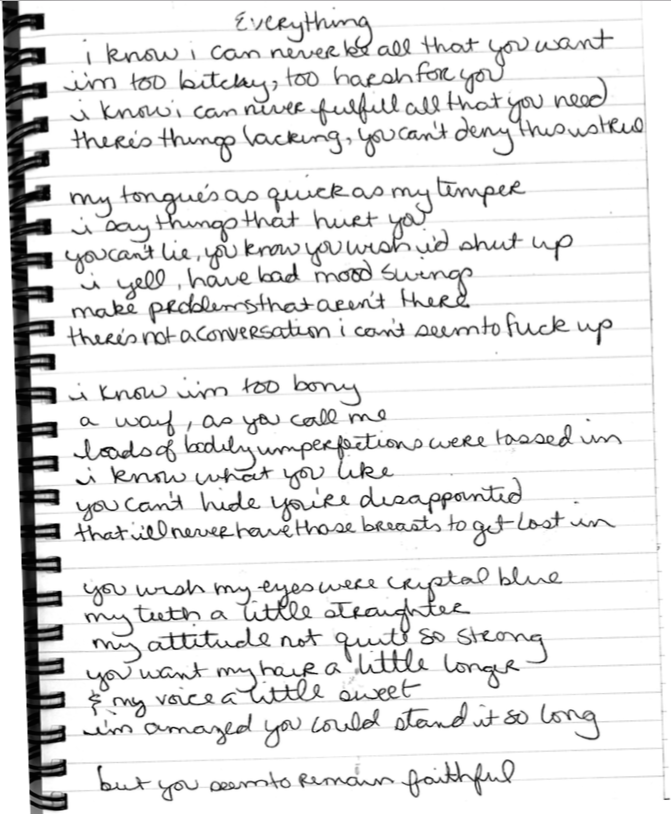 Everything
i know i can never be all that you want
i'm too bitchy, too harsh for you
i know i can never fulfill all that you need
there's things lacking, you can't deny this is true
my tongue's as quick as my temper
i say things that hurt you
you can't lie, you know you wish i'd shut up
i yell, have bad mood swings
make problems that aren't there
there's not a conversation i can't seem to fuck up
i know i'm too bony
a waif, as you call me
loads of bodily imperfections were tossed in
i know what you like
you can't hide you're disappointed
that i'll never have those breasts to get lost in
you wish my eyes were crystal blue
my teeth a little straighter
my attitude not quite so strong
you want my hair a little longer
& my voice a little sweet
i'm amazed you could stand it so long
but you seem to remain faithful